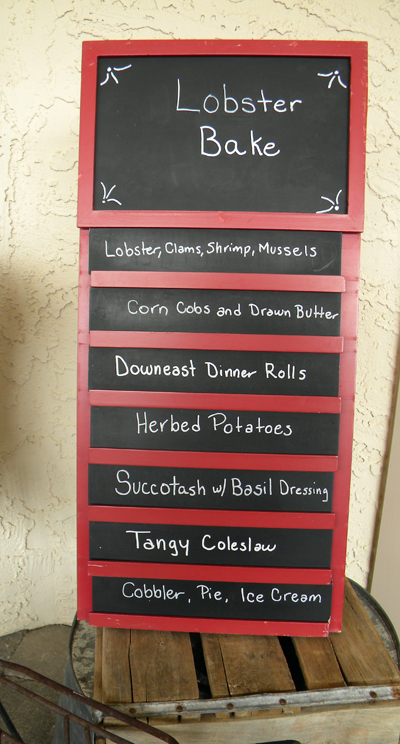 Lobster
Bake
Lobster, Clams, Shrimp, Mussels
Corn Cobs and Drawn Butter
Downeast Dinner Rolls
Herbed Potatoes
Succotash w/ Basil Dressing
Tangy Coleslaw
Cobbler, Pie, Ice Cream